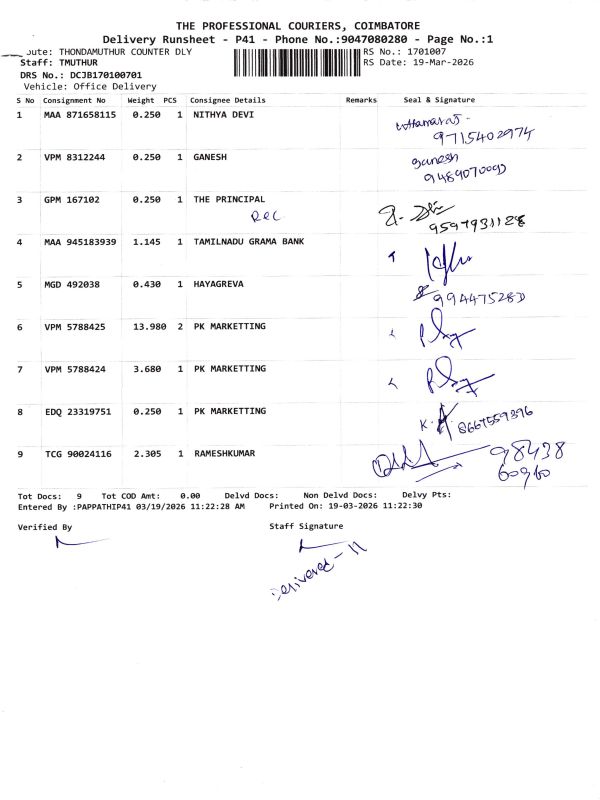 THE PROFESSIONAL COURIERS, COIMBATORE
Delivery Runsheet - P41 - Phone No.:9047080280 - Page No.:1
oute: THONDAMUTHUR COUNTER DLY RS No.: 1701007
Staff: TMUTHUR RS Date: 19-Mar-2026
DRS No.: DCJB170100701
Vehicle: Office Delivery
S No Consignment No Weight PCS Consignee Details Remarks Seal & Signature
1 MAA 871658115 0.250 1 NITHYA DEVI
9715402974
2 VPM 8312244 0.250 1 GANESH ganesh
3 GPM 167102 0.250 1 THE PRINCIPAL
REC
9597931128
4 MAA 945183939 1.145 1 TAMILNADU GRAMA BANK
5 MGD 492038 0.430 1 HAYAGREVA
6 VPM 5788425 13.980 2 PK MARKETTING
7 VPM 5788424 3.680 1 PK MARKETTING
8 EDQ 23319751 0.250 1 PK MARKETTING
8667559396
9 TCG 90024116 2.305 1 RAMESHKUMAR 98438
Tot Docs: 9 Tot COD Amt: 0.00 Delvd Docs: Non Delvd Docs: Delvy Pts:
Entered By :PAPPATHIP41 03/19/2026 11:22:28 AM Printed On: 19-03-2026 11:22:30
Verified By Staff Signature
Delivered - 11